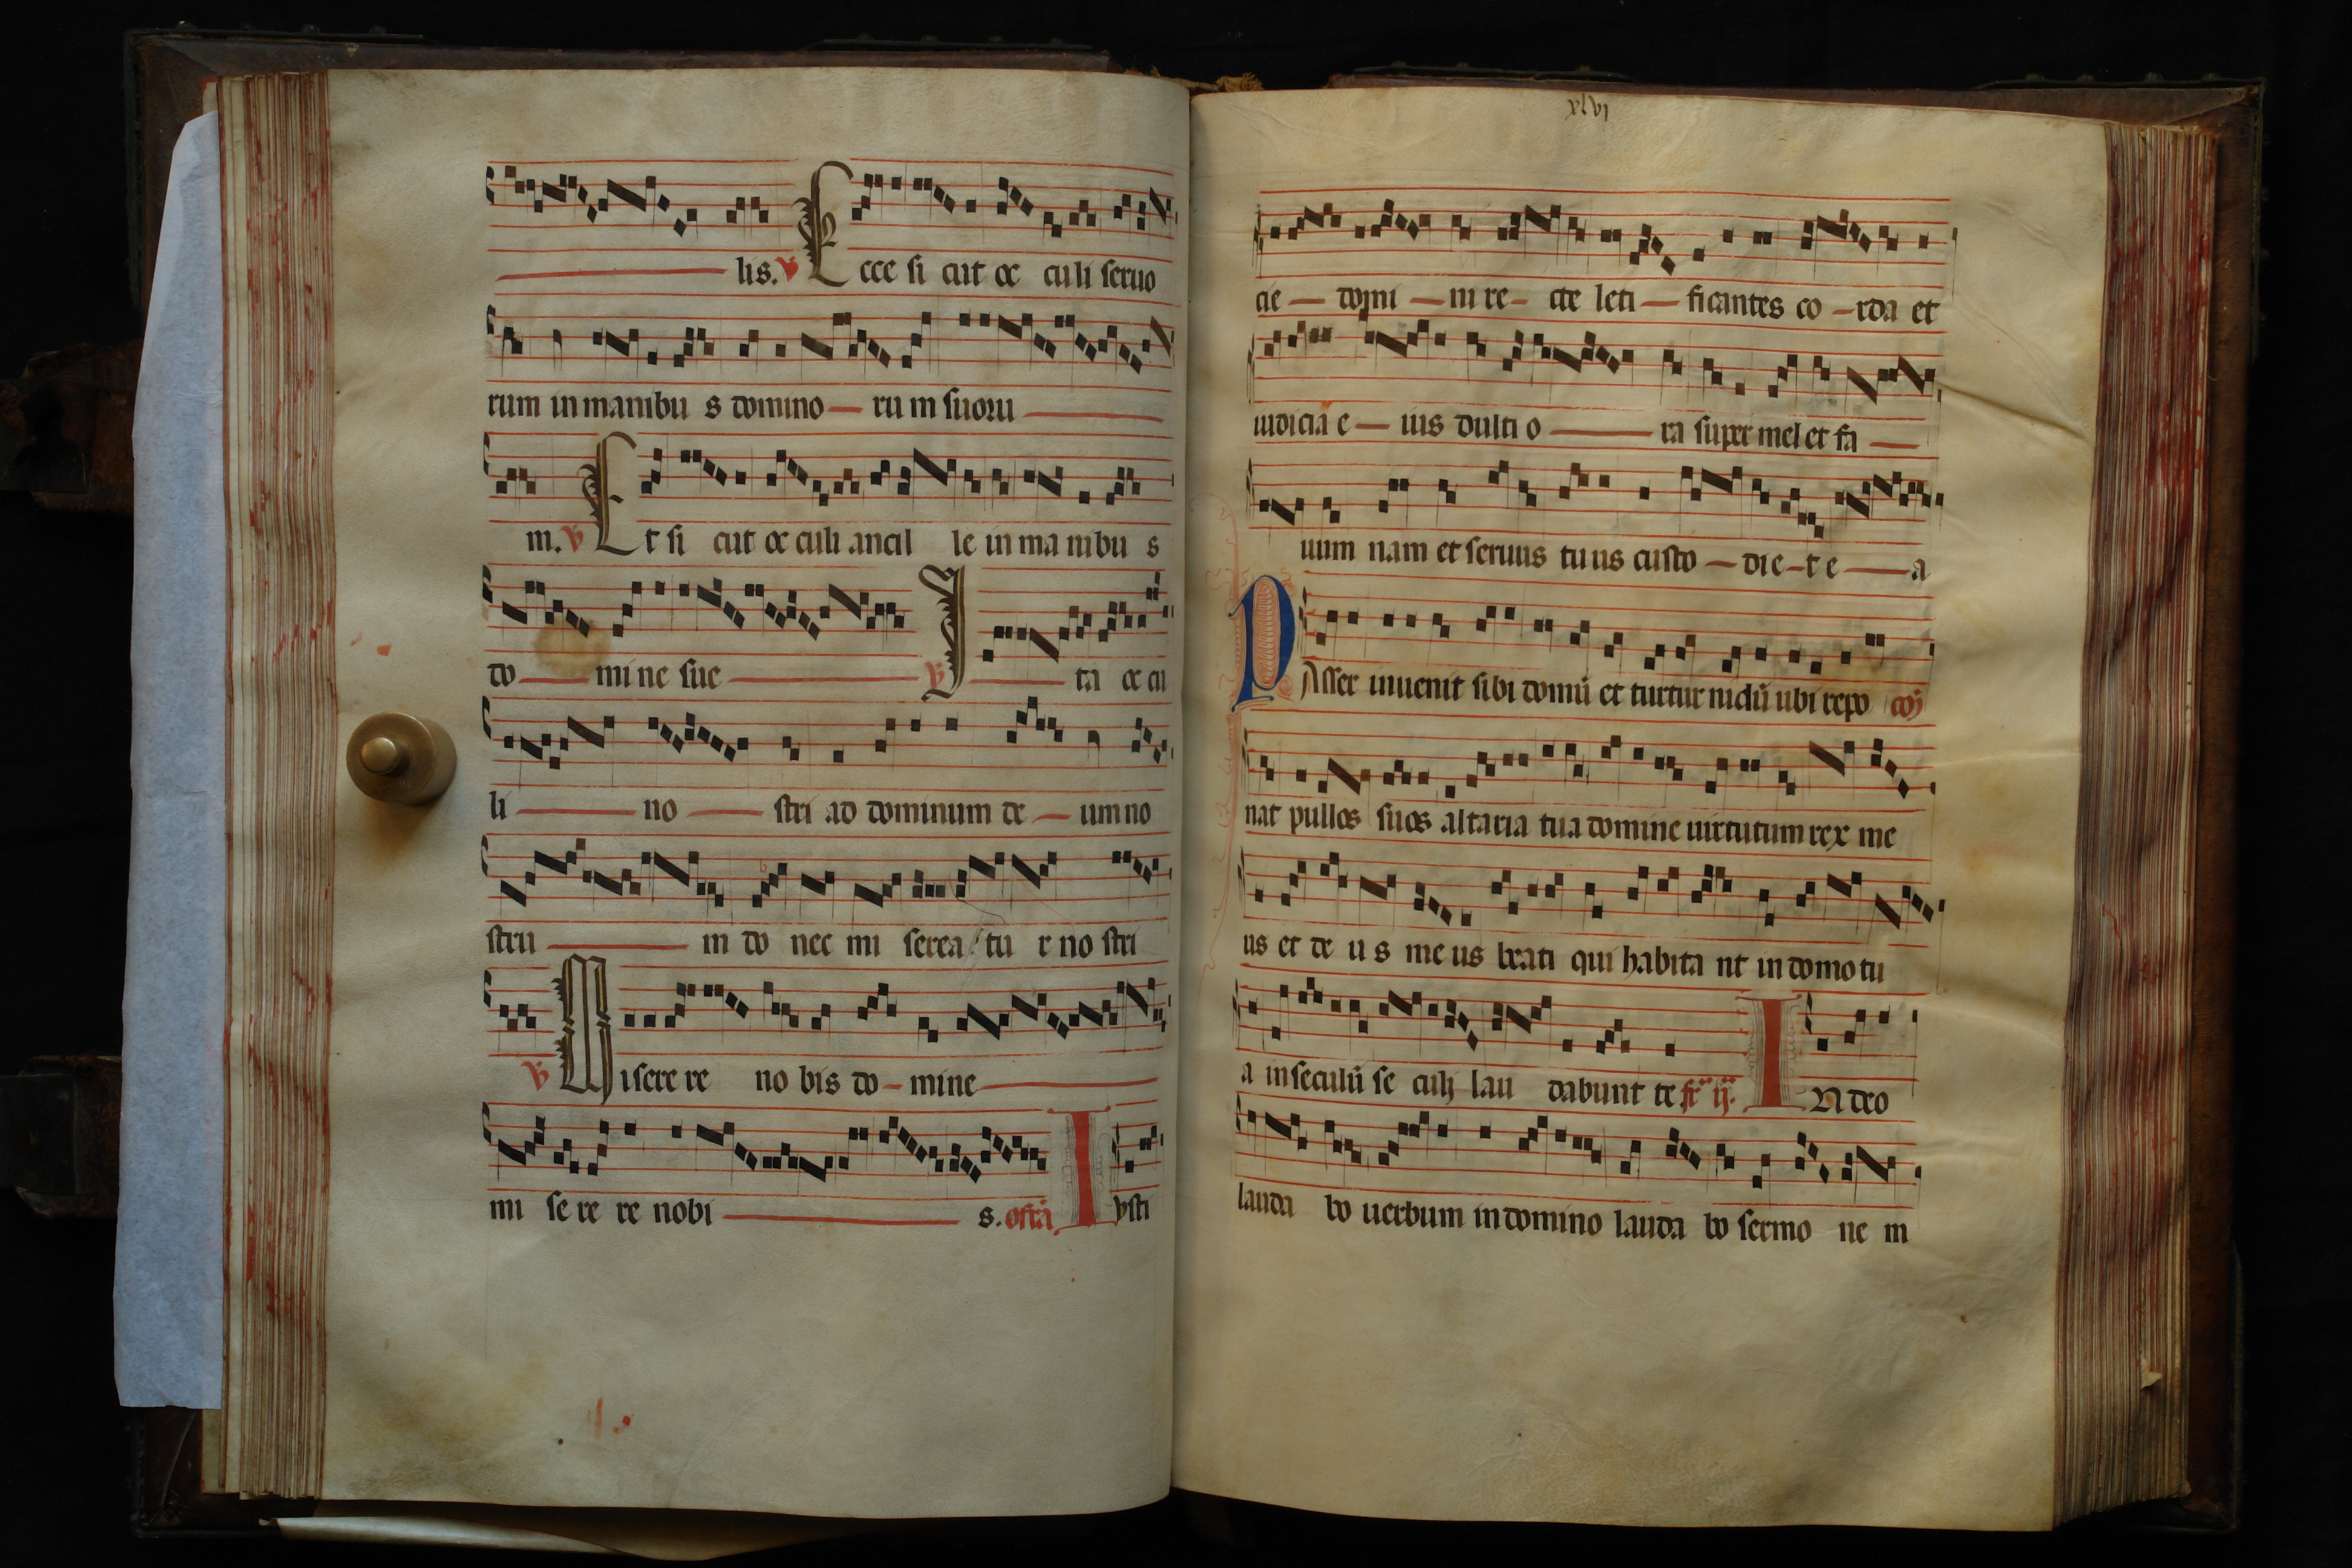 lis. ꝟ Ecce si cut oc culi seruo
rum in manibu s domino — ru m suoru —
m. ꝟ Et si cut oc culi ancil le in ma nibu s
do — mi ne sue — ꝟ I — ta oc cu
li — no — stri ad dominum de — um no
stru — m do nec mi serea tu r no stri
ꝟ Misere re no bis do — mine —
mi se re re nobi — s. offia Iusti
xlvi
cie — domi — ni re — cte leti — ficantes co — rda et
iudicia e — ius dulti o — ra super mel et fa —
uum nam et seruus tu us custo — die — t e — a
PAsser inuenit sibi domū et turtur nidū ubi repo coɱ
nat pullos suos altaria tua domine uirtutum rex me
us et de u s me us beati qui habita nt in domo tu
a in seculū se culi lau dabunt te fr̄ ij. IN deo
lauda bo uerbum in domino lauda bo sermo ne m